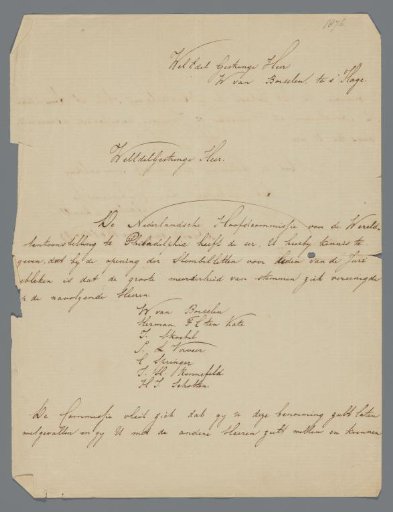 1876
WelEdel Gestrenge Heer
W van Borselen te 's Hage
WelEdelGestrenge Heer.
De Nederlandsche Hoofdcommissie voor de Wereld-
tentoonstelling te Philadelphia heeft de eer U hierby kennis te
geven, dat by de opening der Stembilletten voor leden van de Jury
gebleken is dat de groote meerderheid van stemmen zich vereenigde
op de navolgende Heeren
W van Borselen
Herman F C ten Kate
J. Stroebel
S. L Verveer
E Stringer
J. H. Rennefeld
H J Scholten
De Commissie vleit zich dat gy U deze benoeming zult laten
welgevallen en gy U met de andere Heeren zult willen en kunnen